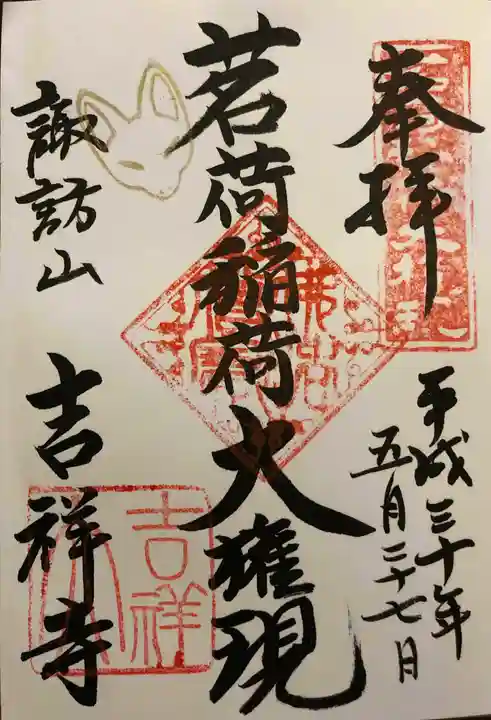 奉拝
平成三十年
五月二十七日
茗荷稲荷大権現
諏訪山
吉祥寺
吉祥